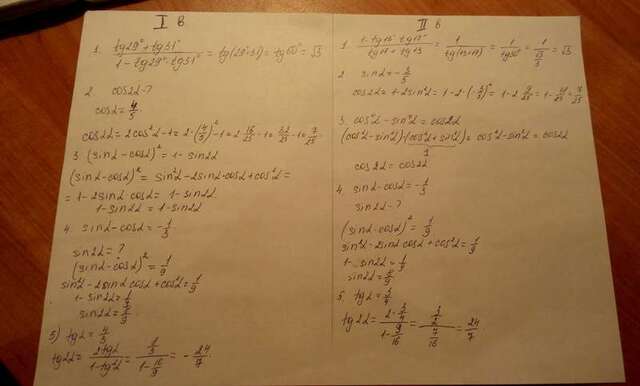 I в
1. (tg29° + tg31°)/(1 - tg29°·tg31°) = tg(29°+31) = tg60° = √3
2. cos2α - ?
cosα = 4/5.
cos2α = 2cos²α - 1 = 2·(4/5)² - 1 = 2·16/25 - 1 = 32/25 - 1 = 7/25.
3. (sinα - cosα)² = 1 - sin2α
(sinα - cosα)² = sin²α - 2sinα·cosα + cos²α =
= 1 - 2sinα cosα = 1 - sin2α.
1 - sin2α = 1 - sin2α
4. sinα - cosα = -1/3
sin2α = ?
(sinα - cosα)² = 1/9
sin²α - 2sinα cosα + cos²α = 1/9
1 - sin2α = 1/9
sin2α = 8/9.
5) tgα = 4/3
tg2α = 2tgα/(1 - tg²α) = (8/3)/(1 - 16/9) = - 24/7.
II в
2. sinα = -3/5
cos2α = 1 - 2sin²α = 1 - 2·(-3/5)² = 1 - 2·9/25 = 1 - 18/25 = 7/25
3. cos⁴α - sin⁴α = cos2α
(cos²α - sin²α)·(cos²α + sin²α) = cos²α - sin²α = cos2α
1
cos2α = cos2α
4. sinα - cosα = -1/3
sin2α - ?
(sinα - cosα)² = 1/9
sin²α - 2sinα cosα + cos²α = 1/9
1 - sin2α = 1/9
sin2α = 8/9
5. tgα = 3/4
tg2α = (2·3/4)/(1 - 9/16) = (3/2)/(7/16) = 24/7